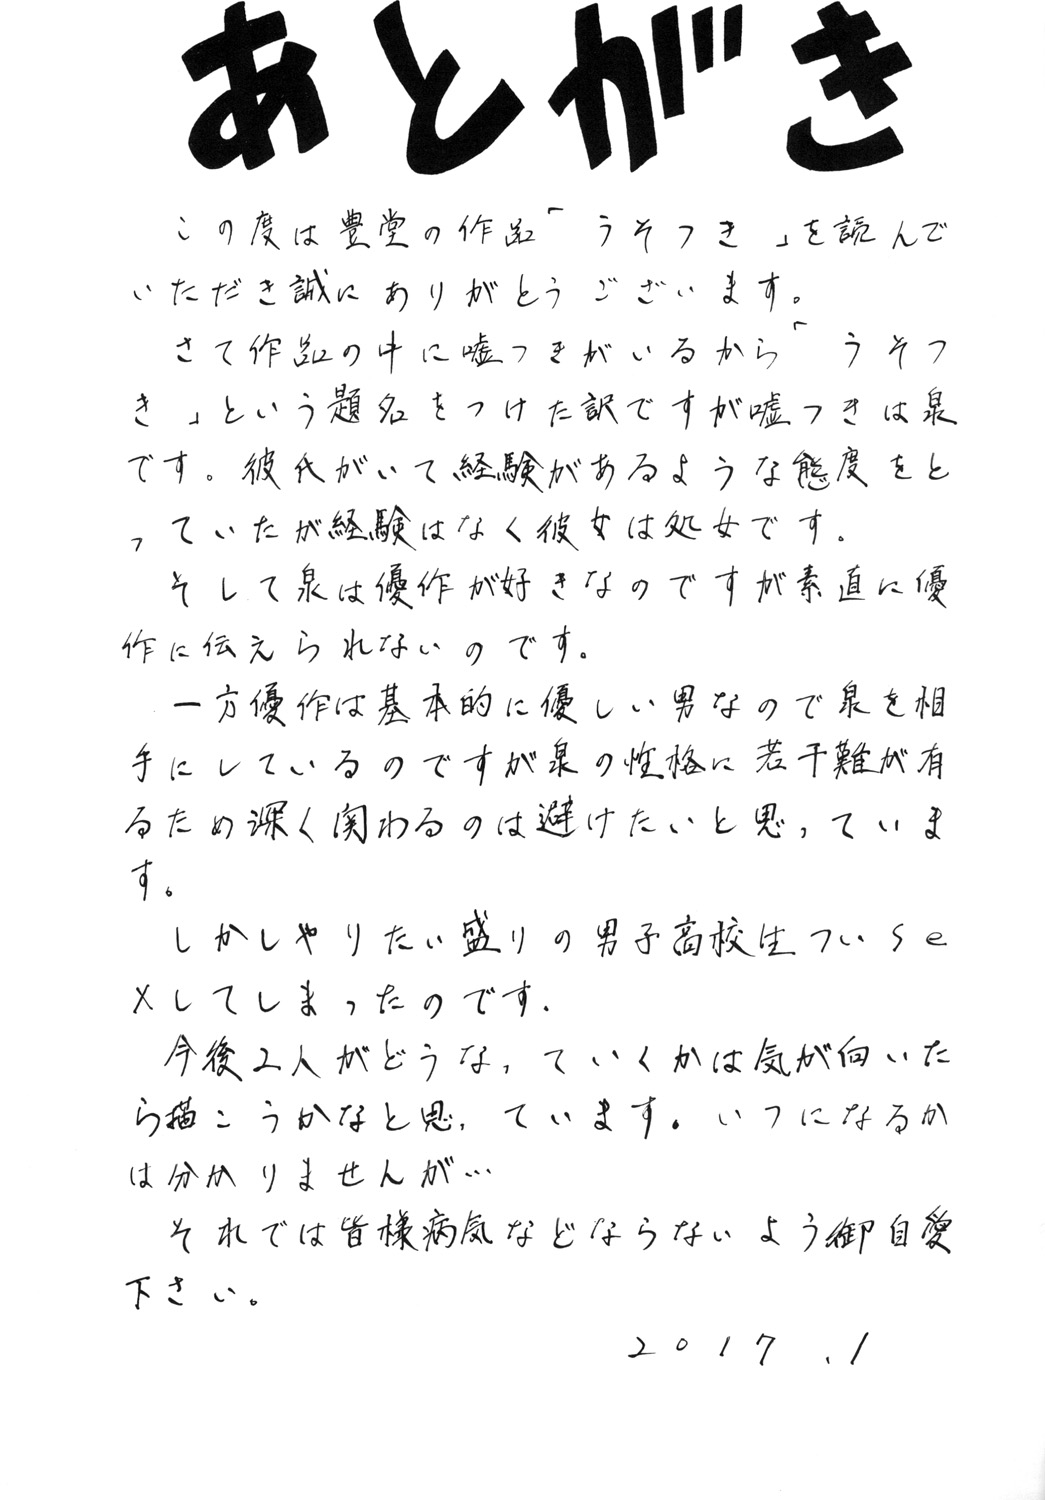 あとがき
この度は豊堂の作品「うそつき」を読んで
いただき誠にありがとうございます。
さて作品の中に嘘つきがいるから「うそつ
き」という題名をつけた訳ですが嘘つきは泉
です。彼氏がいて経験があるような態度をと
っていたが経験はなく彼女は処女です。
そして泉は優作が好きなのですが素直に優
作に伝えられないのです。
一方優作は基本的に優しい男なので泉を相
手にしているのですが泉の性格に若干難が有
るため深く関わるのは避けたいと思っていま
す。
しかしやりたい盛りの男子高校生ついse
xしてしまったのです.
今後2人がどうなっていくかは気が向いた
ら描こうかなと思っています。いつになるか
は分かりませんが…
それでは皆様病気などならないよう御自愛
下さい。
2017.1